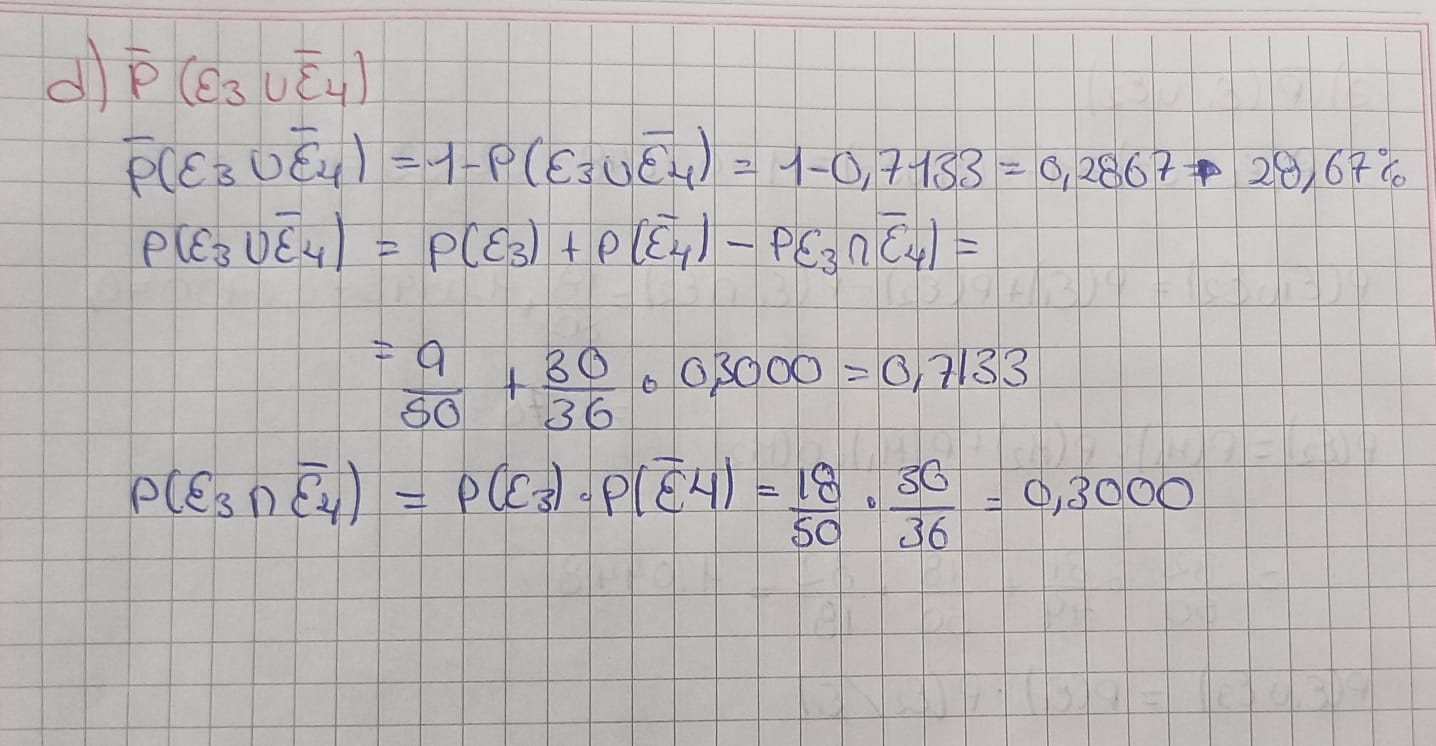 d) P̅ (ε3 ∪ ε̅4)
P̅(ε3 ∪ ε̅4) = 1 - P(ε3 ∪ ε̅4) = 1 - 0,7133 = 0,2867 → 28,67%
P(ε3 ∪ ε̅4) = P(ε3) + P(ε̅4) - Pε3 ∩ ε̅4) =
= 9/50 + 30/36 · 0,3000 = 0,7133
P(ε3 ∩ ε̅4) = P(ε3) · P(ε̅4) = 18/50 · 30/36 = 0,3000